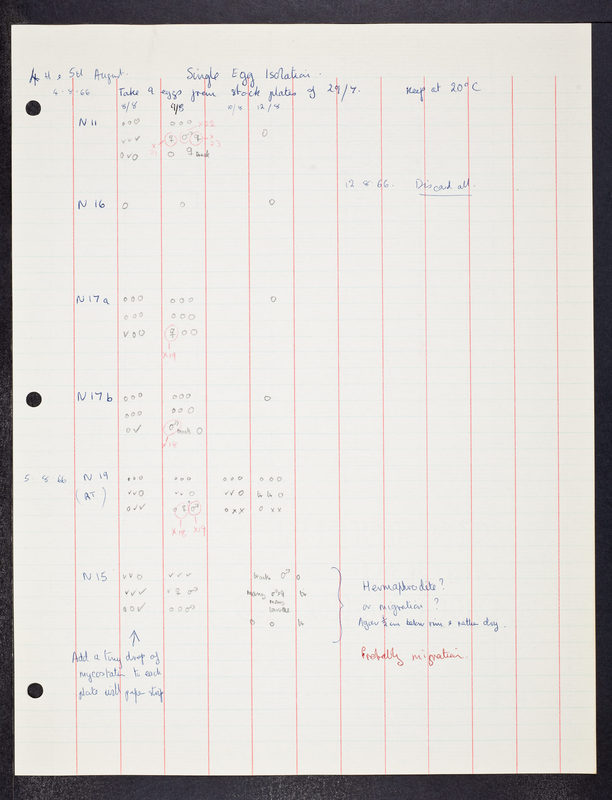 4th & 5th August. Single Egg Isolation.
4.8.66 Take 9 eggs from stock plates of 29/7. Keep at 20°C
8/8 9/8 10/8 12/8
N 11 ooo ooo x22
vvv ♀ ♂ ♀ o
x x 23
ovo o ♀
12.8.66. Discard all.
N 16 o o o
N 17a ooo ooo o
ooo ooo
voo ♀ oo
x19
N 17b ooo ooo o
ooo ooo
ov ♂ o
x18
5.8.66 N 19 ooo ooo ooo ooo
(AT) vvo vvo vvo o
ovv o ♀ ♂ oxx oxx
x18 x19
N 15 vvo vvv ♂ o
vvv v ♀ ♂ many
many
larvae
oov ooo o o
Hermaphrodite?
or migration?
Agar ½ cm below rim & rather dry.
Probably migration.
Add a tiny drop of
mycostatin to each
plate with paper strip